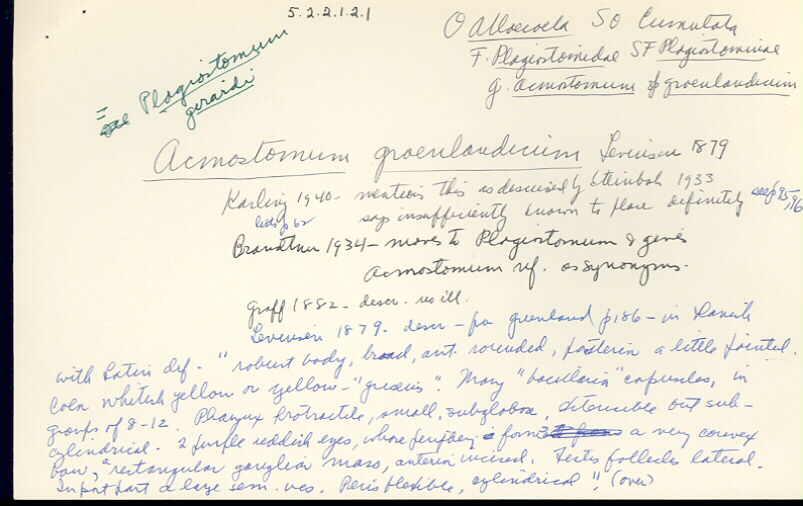 5.2.2.1.2.1
O Alloeocoela SO Cumulata
F. Plagiostomidae SF Plagiostominae
g. Acmostomum groenlandicum
= Plagiostomum
girardi
Acmostomum groenlandicum Levinsen 1879
Karling 1940 - mentions this as discussed by Steinböck 1933
says insufficiently known to place definitely see p 95, 96
lists p 62
Brandtner 1934 - moves to Plagiostomum & gives
Acmostomum ref. as synonyms.
Graff 1882 - descr. no ill.
Levinsen 1879 - descr - fr greenland p 186 - in Danish
with Latin def. "robust body, broad, ant. rounded, posterior a little pointed.
Color whitish yellow or yellow - "griseus". Many "bacillaria" capsules, in
groups of 8-12. Pharynx protractile, small, subglobose, extensible but sub-
cylindrical. 2 purple reddish eyes, whose periphery forms a very convex
bow, "rectangular ganglion mass, anterior incised. Testis follicles lateral.
In post part a large sem. ves. Penis flexible, cylindrical". (over)